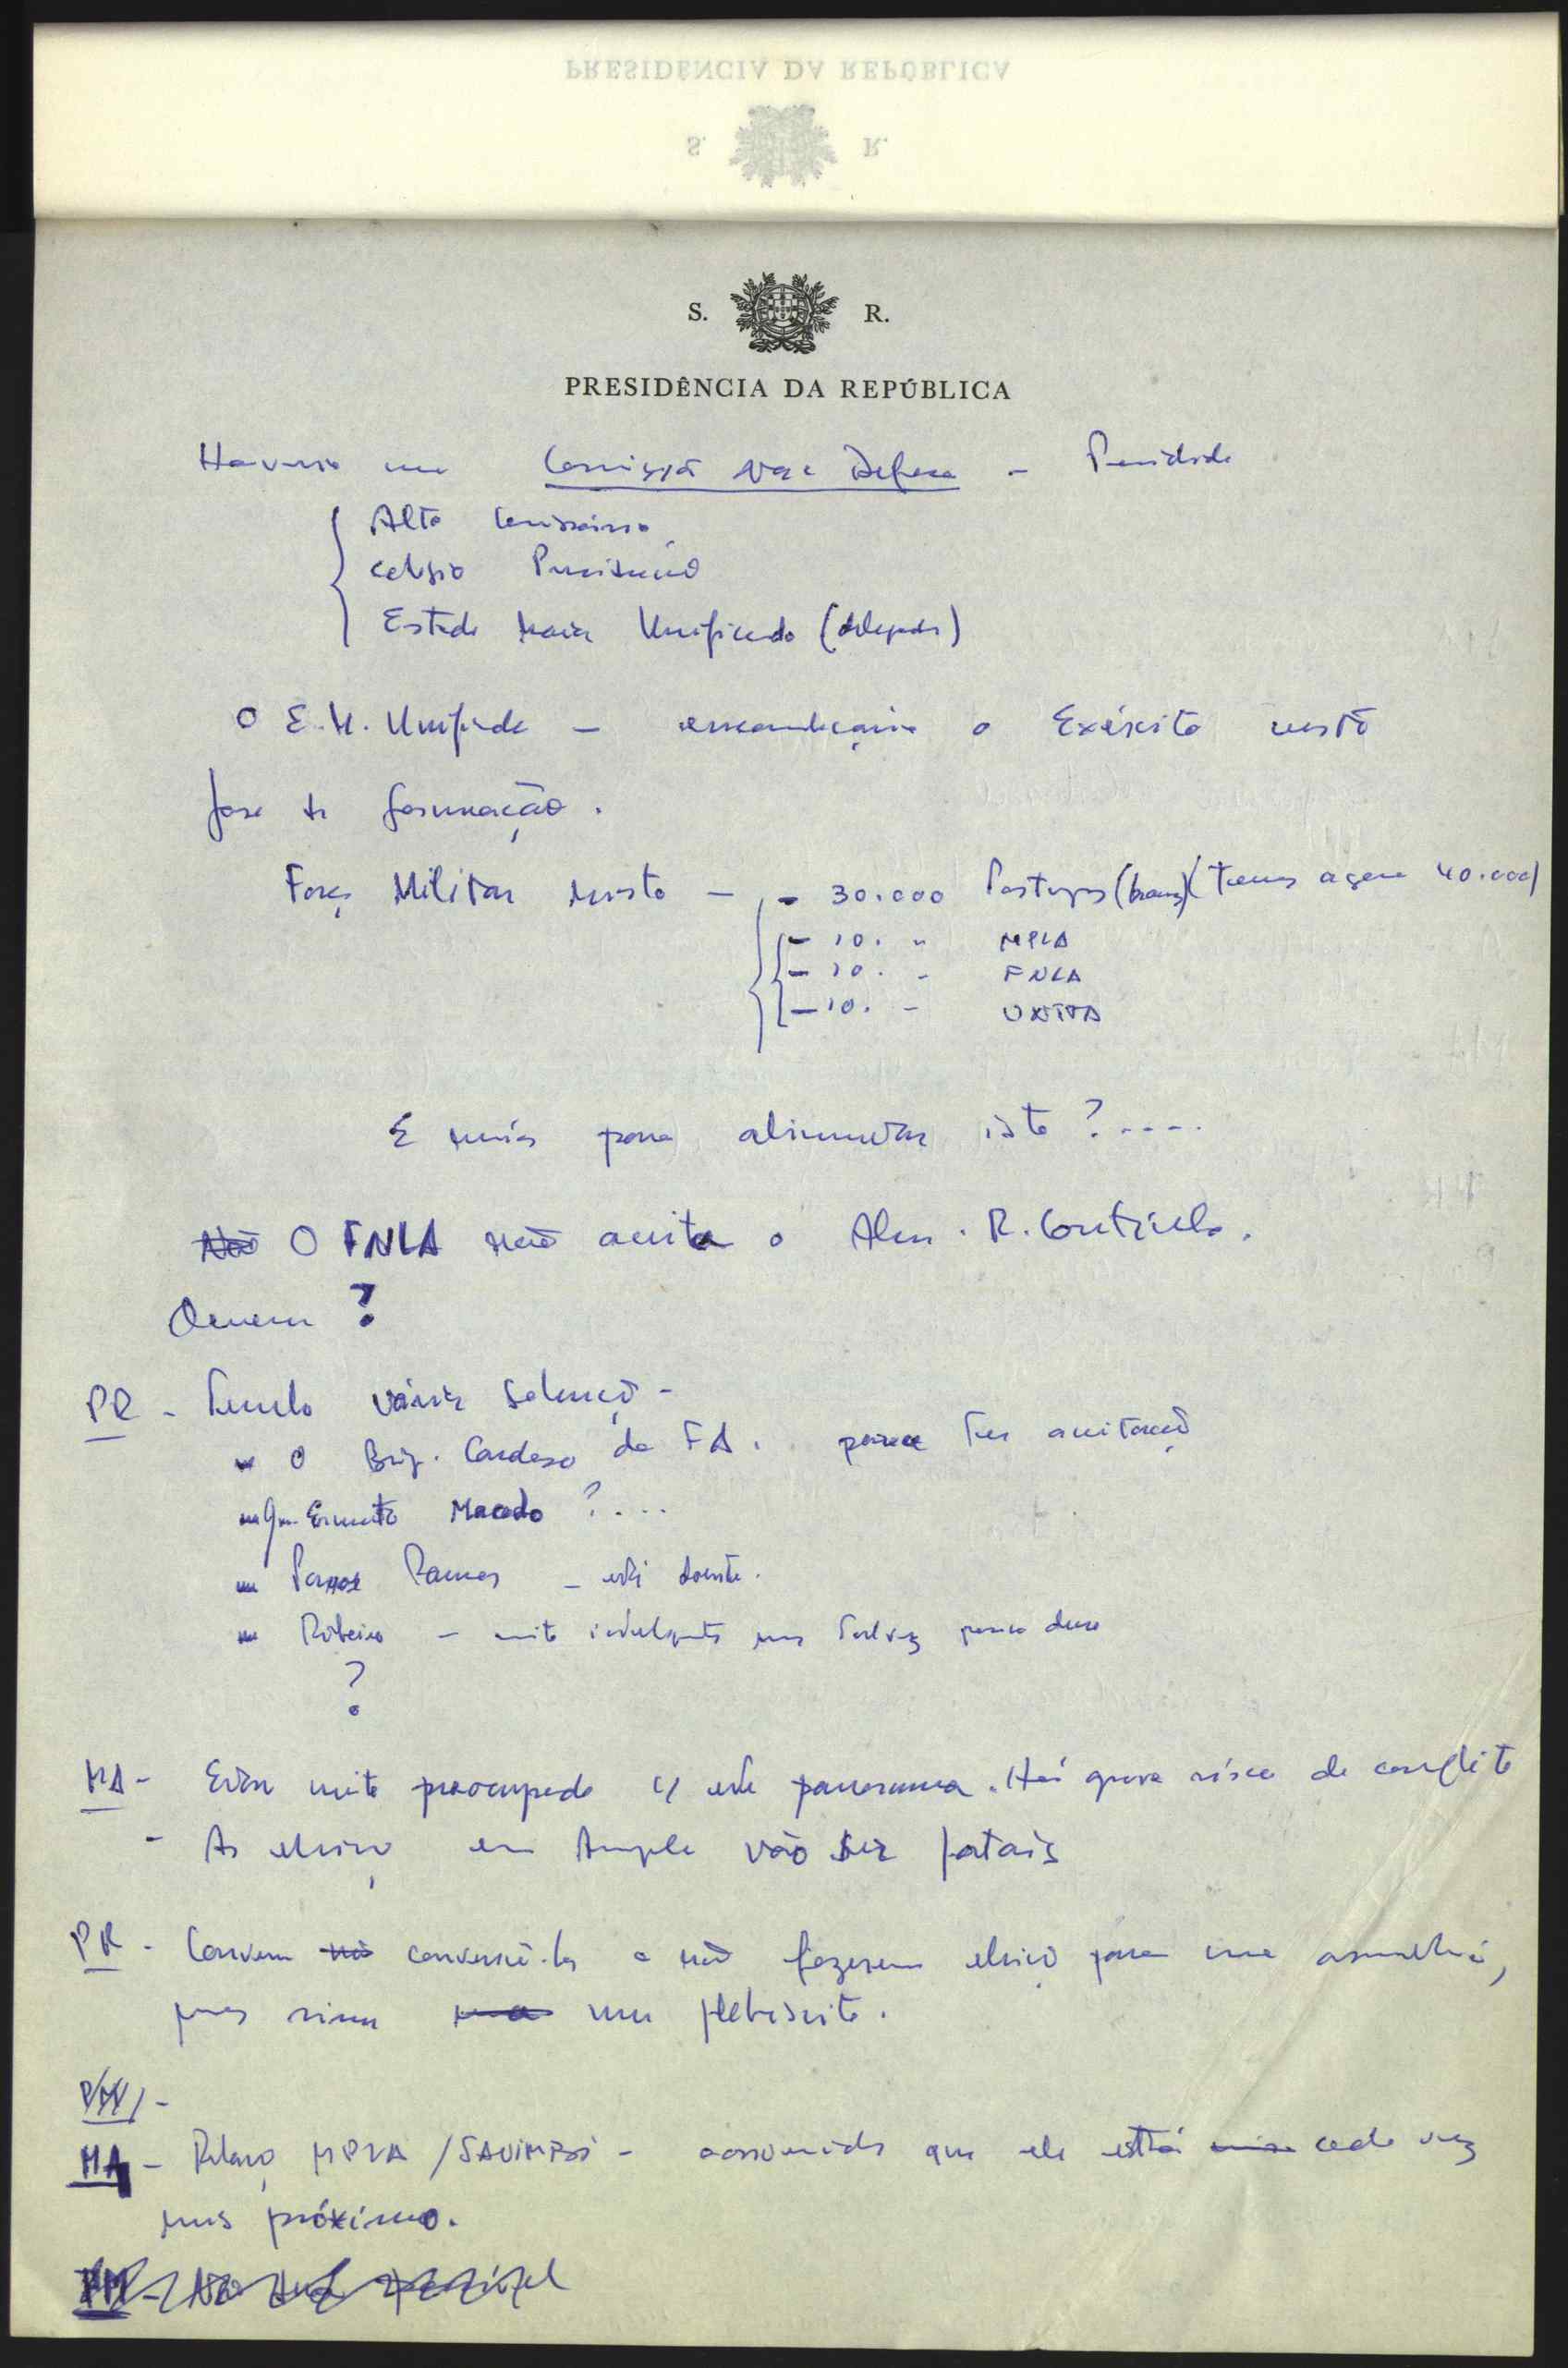 PRESIDÊNCIA DA REPÚBLICA
S. R.
S. R.
PRESIDÊNCIA DA REPÚBLICA
Haveria uma Comissão Nac Defesa - Paridade
Alto Comissário
Colégio Presidencial
Estado Maior Unificado (delegados)
O E.M. Unificado - enquadraria o Exército misto
fase de formação.
Força Militar mista - - 30.000 Portugueses (brancos) (temos agora 40.000)
- 10. " MPLA
- 10. " FNLA
- 10. " UNITA
E meios para alimentar isto ?....
Não O FNLA não aceita o Alm. R. Coutinho.
Quem ?
PR - Tenho várias soluções -
- O Brig. Cardoso da FA. parece ter aceitação
- Gen. Ernesto Macedo ?....
- Passos Ramos - está doente.
- Ribeiro - muito inteligente mas talvez pouco duro
?
MA - Estou muito preocupado c/ este panorama. Há grave risco de conflito
- As eleições em Angola vão ser fatais
PR - Convem não convencê-los a não fazerem eleições para uma assembleia,
mas sim um plebiscito.
PM -
MA - Relações MPLA / SAVIMBI - convencido que ele está cada vez
mais próximo.
PM - Não